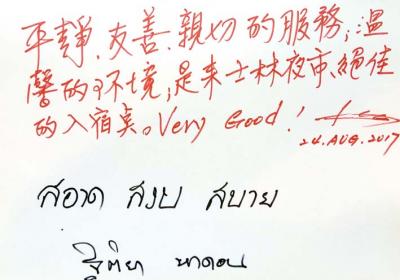 平靜、友善、親切的服務,溫
馨的環境,是来士林夜市、絕佳
的入宿桌。Very Good!
24.AUG.2017
สะอาด สงบ สบาย
ฐิติยา